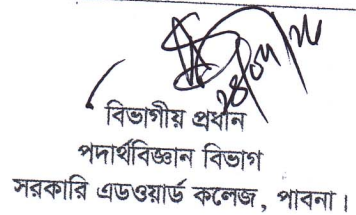 বিভাগীয় প্রধান
পদার্থবিজ্ঞান বিভাগ
সরকারি এডওয়ার্ড কলেজ, পাবনা।